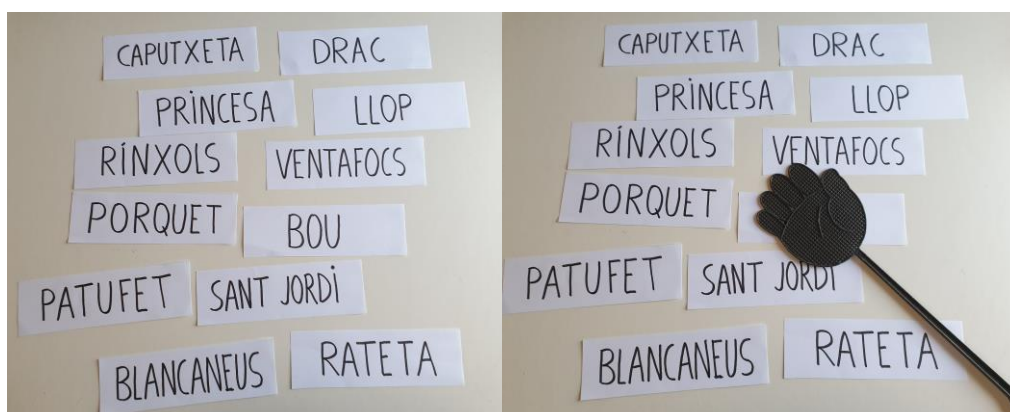 CAPUTXETA DRAC
PRINCESA LLOP
RÍNXOLS VENTAFOCS
PORQUET BOU
PATUFET SANT JORDI
BLANCANEUS RATETA
CAPUTXETA DRAC
PRINCESA LLOP
RÍNXOLS VENTAFOCS
PORQUET
PATUFET SANT JORDI
BLANCANEUS RATETA